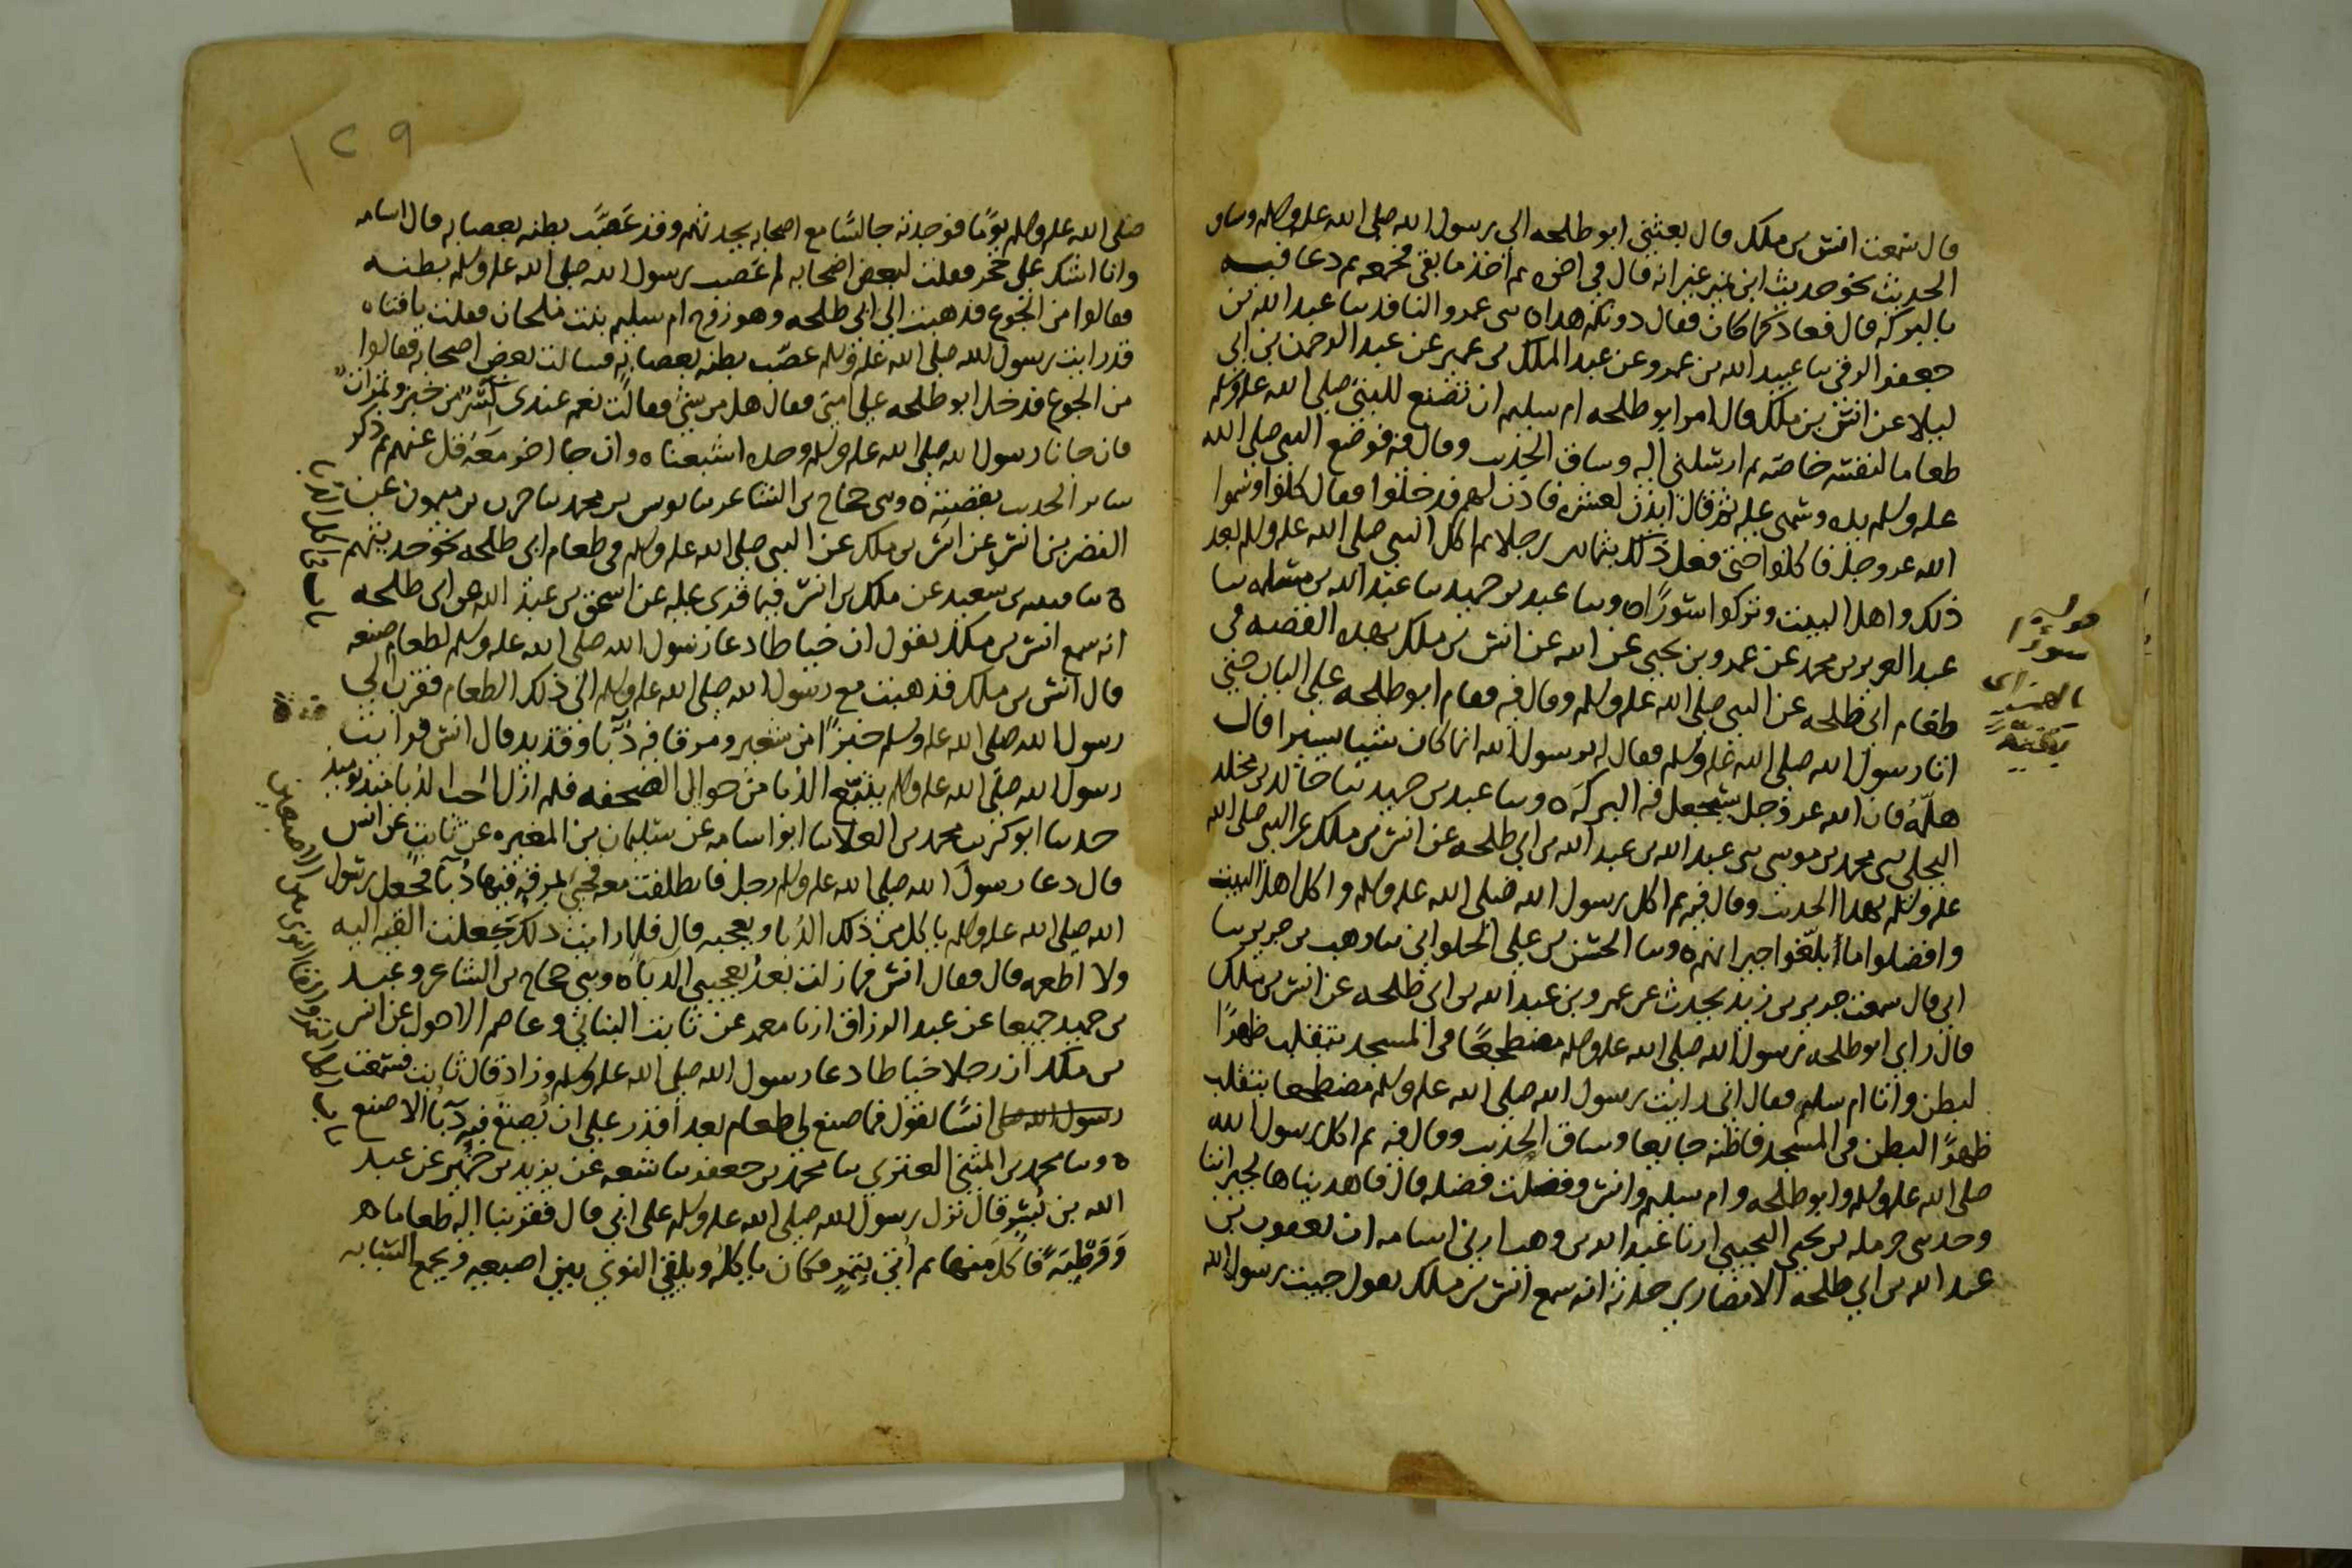 قال سمعت انس بن ملك قال بعثني ابو طلحه الي رسول الله صلى الله عليه وسلم وساق
الحديث نحو حديث ابن نمير غير انه قال في اخره ثم اخذ ما بقي فجمعه ثم دعا فيه
بالبركه قال فعاد كما كان فقال دونكم هذا ه سى عمرو الناقد سا عبد الله بن
جعفر الرقي سا عبيد الله بن عمرو عن عبد الملك بن عمير عن عبد الرحمن بن ابي
ليلا عن انس بن ملك قال امر ابو طلحه ام سليم ان تصنع للنبي صلى الله عليه وسلم
طعاما لنفسه خاصة ثم ارسلني اليه وساق الحديث وقال فيه فوضع النبي صلى الله
عليه وسلم يده وسمى عليه ثم قال ايذن لعشره فاذن لهم فدخلوا فقال كلوا وسموا
الله عز وجل فاكلوا حتى فعل ذلك بثمانين رجلا ثم اكل النبي صلى الله عليه وسلم بعد
ذلك واهل البيت وتركوا سورًا ه وسا عبد بن حميد سا عبد الله بن مسلمه سا
عبد العزيز بن محمد عن عمرو بن يحيى عن ابيه عن انس بن ملك بهذه القصه في
طعام ابي طلحه عن النبي صلى الله عليه وسلم وقال فيه فقام ابو طلحه على الباب حتي
اتا رسول الله صلى الله عليه وسلم فقال له يرسول الله انما كان شيا يسيرا قال
هلمّهُ فان الله عز وجل سيجعل فيه البركه ه وسا عبد بن حميد سا خالد بن مخلد
البجلي سى محمد بن موسى سى عبد الله بن عبد الله بن ابي طلحه عن انس بن ملك عن النبي صلى الله
عليه وسلم بهذا الحديث وقال فيه ثم اكل رسول الله صلى الله عليه وسلم واكل اهل البيت
وافضلوا ما ابلغوا جيرانهم ه وسا الحسن بن علي الحلواني سا وهب بن جرير سا
ابي قال سمعت جرير بن زيد يحدث عن عمرو بن عبد الله بن ابي طلحه عن انس بن ملك
قال راى ابو طلحه رسول الله صلى الله عليه وسلم مضطجعًا في المسجد يتقلب ظهرًا
لبطن واتا ام سليم فقال اني رايت رسول الله صلى الله عليه وسلم مضطجعا يتقلب
ظهرًا لبطن في المسجد فاظنه جايعا وساق الحديث وقال فيه ثم اكل رسول الله
صلى الله عليه وسلم وابو طلحه وام سليم وانس وفضلت فضله قال فاهديناها لجيراننا
وحدسى حرمله بن يحيى التجيبي ارنا عبد الله بن وهب ارني اسامه ان يعقوب بن
عبد الله بن ابي طلحه الانصاري حدثه انه سمع انس بن ملك يقول جيت رسول الله
قوله
سورًا
بالهمز اى
بقيّة
١٢٩
صلى الله عليه وسلم يومًا فوجدته جالسًا مع اصحابه يحدثهم وقد عَصَّب بطنه بعصابه قال اسامه
وانا اشك على حجر فقلت لبعض اصحابه لم عصب رسول الله صلى الله عليه وسلم بطنه
فقالوا من الجوع فذهبت الى ابي طلحه وهو زوج ام سليم بنت ملحان فقلت يا ابتاه
قد رايت رسول الله صلى الله عليه وسلم عصّب بطنه بعصابه فسالت بعض اصحابه فقالوا
من الجوع فدخل ابو طلحه على امي فقال هل من شي فقالت نعم عندي كسر من خبز وتمرات
فان جانا رسول الله صلى الله عليه وسلم وحده اشبعناه وان جا اخر معَه قل عنهم ثم ذكر
ساير الحديث بقصته ه وسى حجاج بن الشاعر سا يونس بن محمد سا حرب بن ميمون عن
النضر بن انس عن انس بن ملك عن النبي صلى الله عليه وسلم في طعام ابي طلحه نحو حديثهم
ه سا قتيبه بن سعيد عن ملك بن انس فيما قرى عليه عن اسحق بن عبد الله بن ابي طلحه
انه سمع انس بن ملك يقول ان خياطا دعا رسول الله صلى الله عليه وسلم لطعام صنعه
قال انس بن ملك فذهبت مع رسول الله صلى الله عليه وسلم الى ذلك الطعام فقرب الي
رسول الله صلى الله عليه وسلم خبزًا من شعير ومرقا فيه دُبّا وقديد قال انس فرايت
رسول الله صلى الله عليه وسلم يتتبّع الدبا من حوالي الصحفه فلم ازل احب الدبا منذ يوميذ
حدسا ابو كريب محمد بن العلا سا ابو اسامه عن سليمان بن المغيره عن ثابت عن انس
قال دعا رسول الله صلى الله عليه وسلم رجل فانطلقت معه فجى بمرقه فيها دُبّا فجعل رسول
الله صلى الله عليه وسلم ياكل من ذلك الدُبا ويعجبه قال فلما رايت ذلك جعلت القيه اليه
ولا اطعمه قال فقال انس فما زلت بعدُ يعجبني الدبا ه وسى حجاج بن الشاعر وعبد
بن حميد جميعا عن عبد الرزاق ارنا معمر عن ثابت البناني وعاصم الاحول عن انس
بن ملك ان رجلا خياطا دعا رسول الله صلى الله عليه وسلم وزاد قال ثابت فسمعت
رسول الله صلى انسًا يقول فما صنع لي طعام بعد اقدر على ان يُصنع فيه دُبّا الا صنع
ه وسا محمد بن المثنى العنزي سا محمد بن جعفر سا شعبه عن يزيد بن خُمير عن عبد
الله بن بُسر قال نزل رسول الله صلى الله عليه وسلم على ابي قال فقربنا اليه طعاما
وَوَطْبَةً فاكلَ منها ثم اُتي بتمرٍ فكان ياكلُه ويلقي النوى بين اصبعيه ويجمع السبابه
باب في اكل الدبا